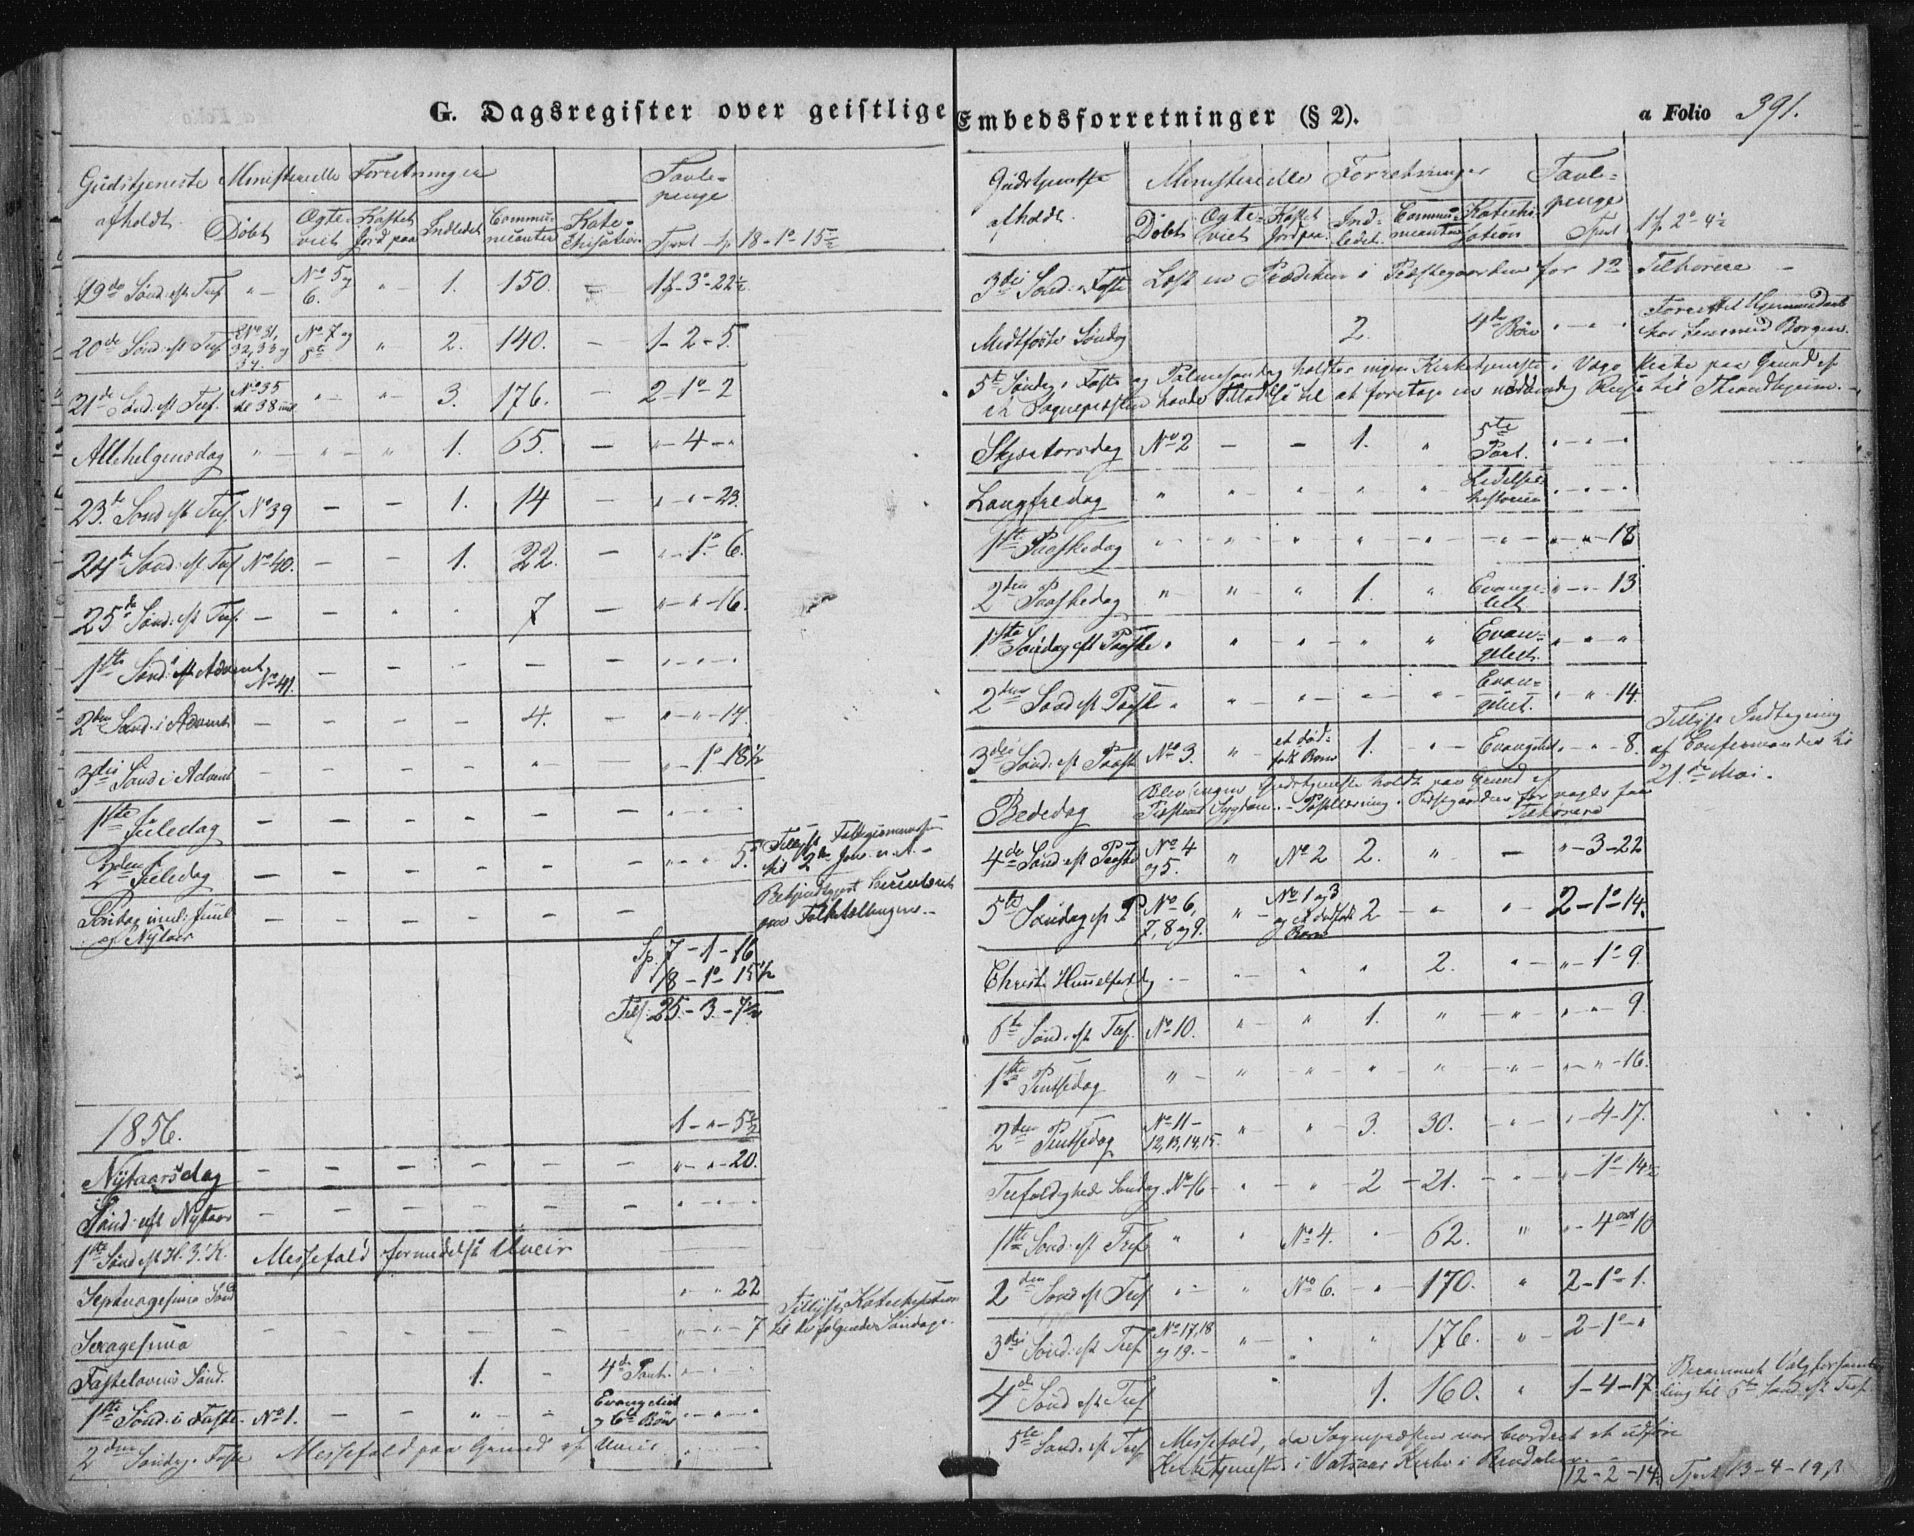 G. Dagsregister over geistlige
Gudstjeneste Ministerielle Forretninger Tavle-
afholdt. penge
Døbt Ægte- Kastet Indledet Commu- Kate-
viet Jord paa nicanter chisation Tprt 18-1°-15½
19de Sønd. eft Tref. " - No 5 og " - 1. 150. - 1-3°-22½
6.
20de Sønd. eft Tref. No 31, No 7 og " 2. 140. - 1-2-5.
32, 33 og 8te
34.
21de Sønd. eft Tref. No 35 " - " - 3. 176. - 2-1°-2
til 38
Allehelgensdag " - " - " - 1. 65. - "-4-"
23de Sønd. eft Tref. No 39 - - 1. 14 - "-"-23.
24de Sønd. eft Tref No 40. - - 1. 22. - "-1°-6.
25de Sønd. eft Tref. - - " " 7 - "-"-16.
1ste Sønd. i Advent - - - - - "-"-"
No 41.
2den Sønd. i Advent - - - - 4. - "-"-14.
3die Sønd. i Advent - - - - " - "-1°-18½
1ste Juledag - - - - - - "-"-"
2den Juledag - - - - - - "-"-5.
Tillyst
til 2den Jan.
Bekjendtgjort
paa Folketællingen. -
Søndag imel. Juul - - - - - -
og Nytaar
Sp. 7-1-16
18-1°-15½
Tils. 25-3-7½
1856. 1-"-5½
Nytaarsdag - - - - - - "-"-20.
Sønd. eft Nytaar - - - - - - "-"-"
1ste Sønd. eft H. 3 K. Messefald formedelst Uveir
Septuagesima Sønd "-"-22
Tillyst Katechisation
til de følgende Søndage.
Sexagesima - - - - - - "-"-7
Fastelavns Sønd. 1. - 4de Part. "-"-"
1ste Sønd. i Faste No 1. - - " - Evangeliet "-"-"
og 6te Bøn
2den Søndag i Faste Messefald paa Grund af Uveir "-"-"
Embedsforretninger (§ 2). a Folio 391.
Gudstjeneste Ministerielle Forretninger Tavle-
afholdt. penge
Døbt Ægte- Kastet Ind- Commu- Katechi-
viet Jord paa. ledet. nicanter sation Tprt 1 2° 4½
3die Sønd. i Faste Læst en Prædiken i Præstegaarden for 12 Tilhørere -
Midfaste Søndag 2. 4de Bøn "-"-"
Borgen.
5te Søndag i Faste og Palmesøndag holdtes ingen Kirketjeneste i Vaage Kirke paa Grund af
at Sognepræsten havde Tilladelse til at foretage en nødvendig Reise til Throndhjem. -
Skjærtorsdag No 2 - - 1. " 5te "-"-"
Part.
Langfredag " " " " " Lidelses- "-"-"
historien
1ste Paaskedag " " " " " " "-"-18
2den Paaskedag " " " 1. " Evange- "-"-13
liet
1ste Søndag eft Paaske " " " " " Evan- " " "
geliet.
2den Sønd eft Paaske " " " " " Evan- "-"-14.
geliet.
3die Sønd. eft Paaske No 3. " et død- 1. " - Evangeliet "-"-8.
født Barn
Tillyst Indtegning
af Confirmander til
21de Mai.
Bededag Blev ingen Gudstjeneste holdt paa Grund af
Præstens Sygdom. - Postillæsning i Præstegaarden for nogle faa
Tilhørere
4de Sønd. eft Paaske No 4 " No 2 2. " - "-3-22
og 5.
5te Søndag eft P No 6, " No 1 og 3 2 - " " 2-1°-14.
7, 8 og 9. og et dødfødt
Barn
Christi Himmelfartsdag " - " " " 2. " "-1°-9.
6te Sønd. eft No 10. " " 1. " " "-"-9.
1ste Pintsedag " " " " " " "-"-16.
2den Pintsedag No 11- " " 3. 30. " "-4-17.
12, 13, 14, 15.
Trefoldigheds Søndag No 16 " " 2 -21. " "-1°-14½
1ste Sønd. eft Tref " " No 4. " 62. " "-4-10
2den Sønd eft Tref " " No 6. " 170. " 2-1°-1.
3die Sønd. eft Tref No 17, 18 " " " 176. " 2-1°-"
og 19. -
4de Sønd eft Tref " 1. 160. " 1-4-17.
Berammet Valgforsam-
ling til 6te Sønd. eft Tref
5te Sønd. eft Tref Messefald, da Sognepræsten var beordret at udføre
Kirketjeneste i Kirke i
12-2-14½ Tprt 13-4-19